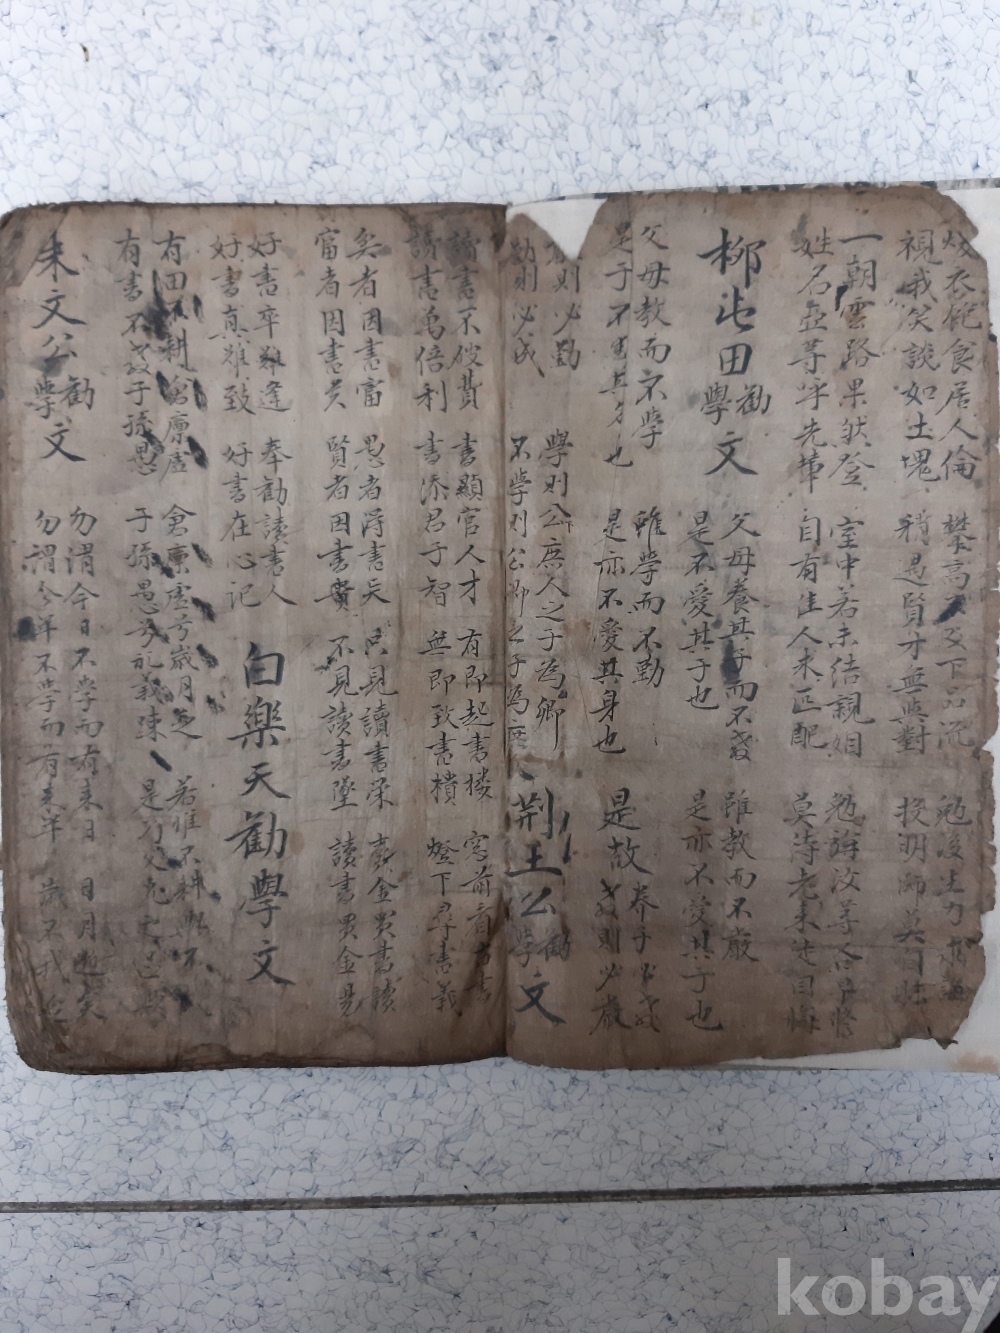 衣飽食居人倫 攀高 下品流 勉後生力求誨
視我笑談如土塊 稍是賢才無與對 投明師莫自昧
一朝雲路果然登 室中若未結親姻 勉旃汝等各早修
姓名亞等呼先輩 自有佳人求匹配 莫待老來徒自悔
柳屯田勸學文
父母養其子而不敎 雖教而不嚴
是不愛其子也 是亦不愛其子也
父母教而不學 雖學而不勤 養子必敎
是子不愛其身也 是亦不愛其身也 是故 敎則必嚴
則必勤 學則 庶人之子為 卿
勤則必成 不學則公卿之子為庶
荊王公勸學文
讀書不破費 書顯官人才 有即起書樓 窓前看古書
讀書萬倍利 書添君子智 無即致書樻 燈下尋書義
貧者因書富 愚者得書賢 只見讀書榮 賣金買書讀
富者因書貴 賢者因書貴 不見讀書墜 讀書買金易
好書卒難逢 奉勸讀書人
好書真難致 好書在心記
白樂天勸學文
有田不耕倉廩虛 倉廩虛兮歲月乏 若惟不耕與不
有書不敎子孫愚 子孫愚兮礼義疎 是乃父兄之過與
朱文公勸學文
勿謂今日不學而有來日 日月逝矣
勿謂今年不學而有來年 歲不我延
kobay